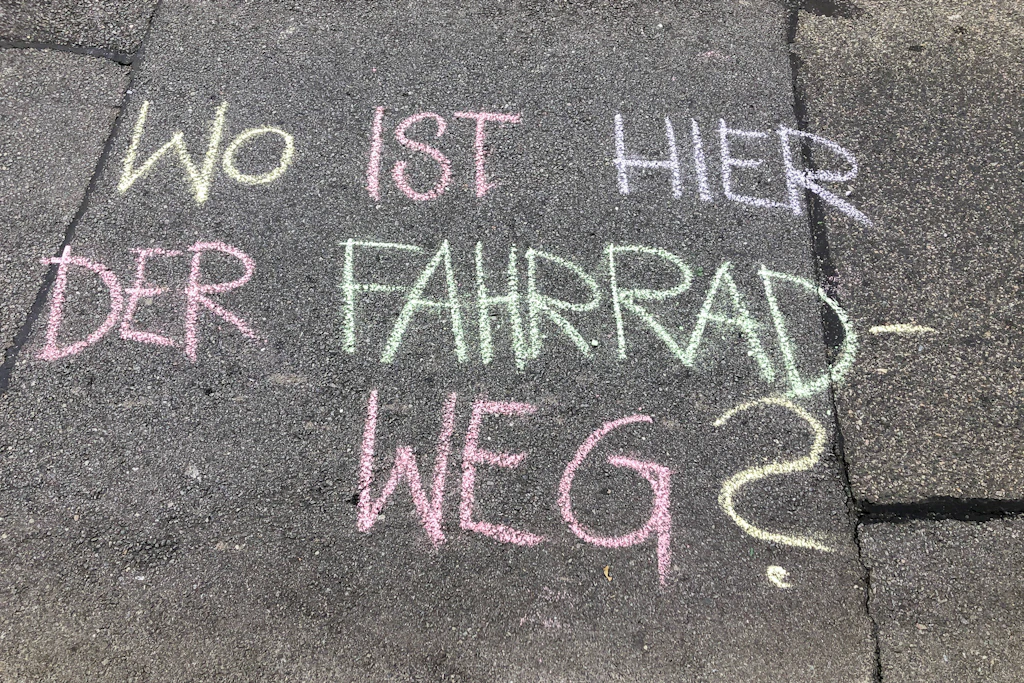 WO IST HIER
DER FAHRRAD-
WEG?